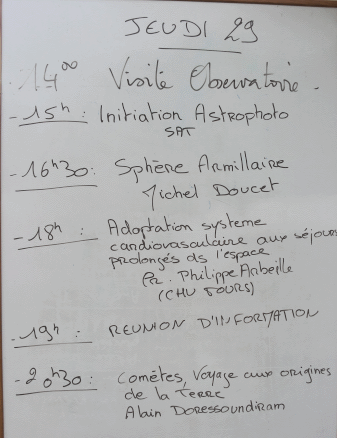 JEUDI 29
- 14⁰⁰ Visite Observatoire.
- 15ʰ : Initiation Astrophoto
SAT
- 16ʰ30 : Sphère Armillaire
Michel Doucet
- 18ʰ : Adaptation système
cardiovasculaire aux séjours
prolongés ds l'espace
Pr. Philippe Arbeille
(CHU TOURS)
- 19ʰ : REUNION D'INFORMATION
- 20ʰ30 : Comètes, Voyage aux origines
de la Terre
Alain Doressoundiram